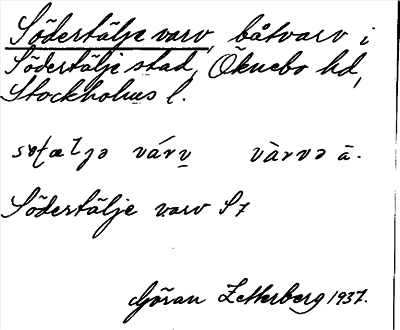 Södertälje varv, båtvarv i
Södertälje stad, Öknebo hd,
Stockholms l.
várv̲ vàrvə ā.
Södertälje varv S7
Göran Zetterberg 1937.